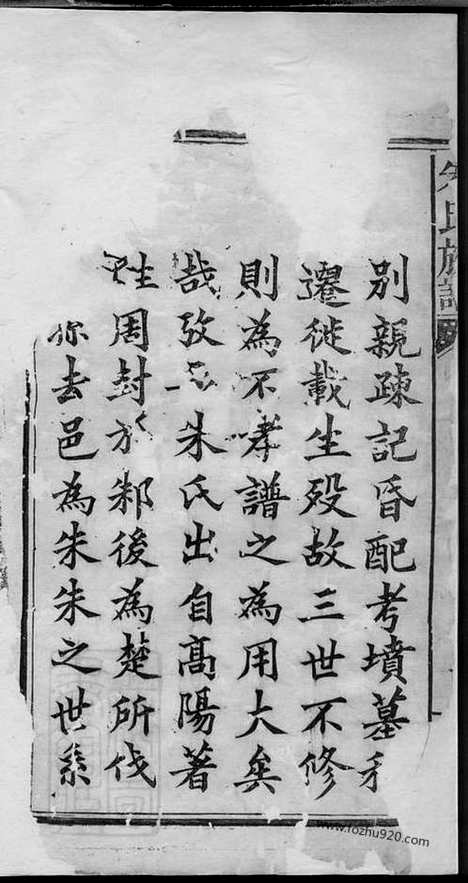 朱氏族譜
別親疎記昏配考墳墓
遷徙載生殁故三世不修
則為不孝譜之為用大矣
哉攷朱氏出自高陽著
姓周封於邾後為楚所伐
去邑為朱朱之世系
www.fozhu920.com